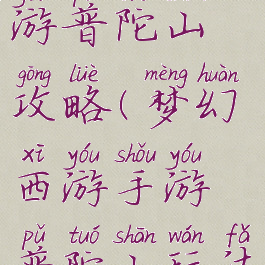 游普陀山
gōng lüè mèng huàn
攻略(梦幻
xī yóu shǒu yóu
西游手游
pǔ tuó shān wán fǎ